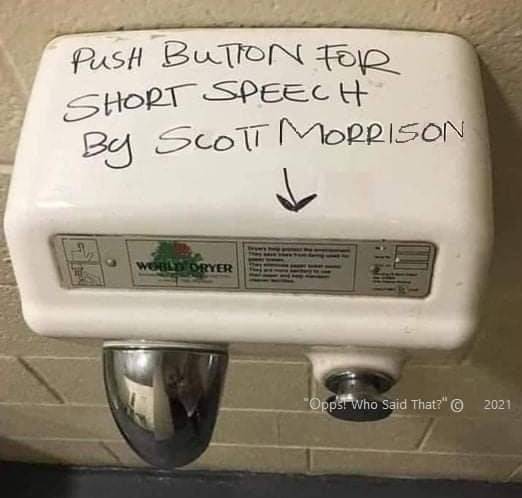 PUSH BUTTON FOR
SHORT SPEECH
By SCOTT MORRISON
WORLD DRYER
Dryers help protect the environment
They save trees from being used for
paper towels
They eliminate paper towel waste
They are more sanitary to use
than paper and help maintain
cleaner facilities
"Opps! Who Said That?" © 2021